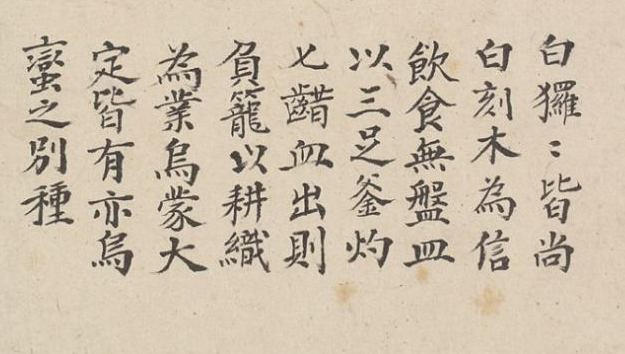 白玀〻皆尚
白刻木為信
飲食無盤皿
以三足釜灼
七齰血出則
負籠以耕織
為業烏蒙大
定皆有亦烏
蠻之別種